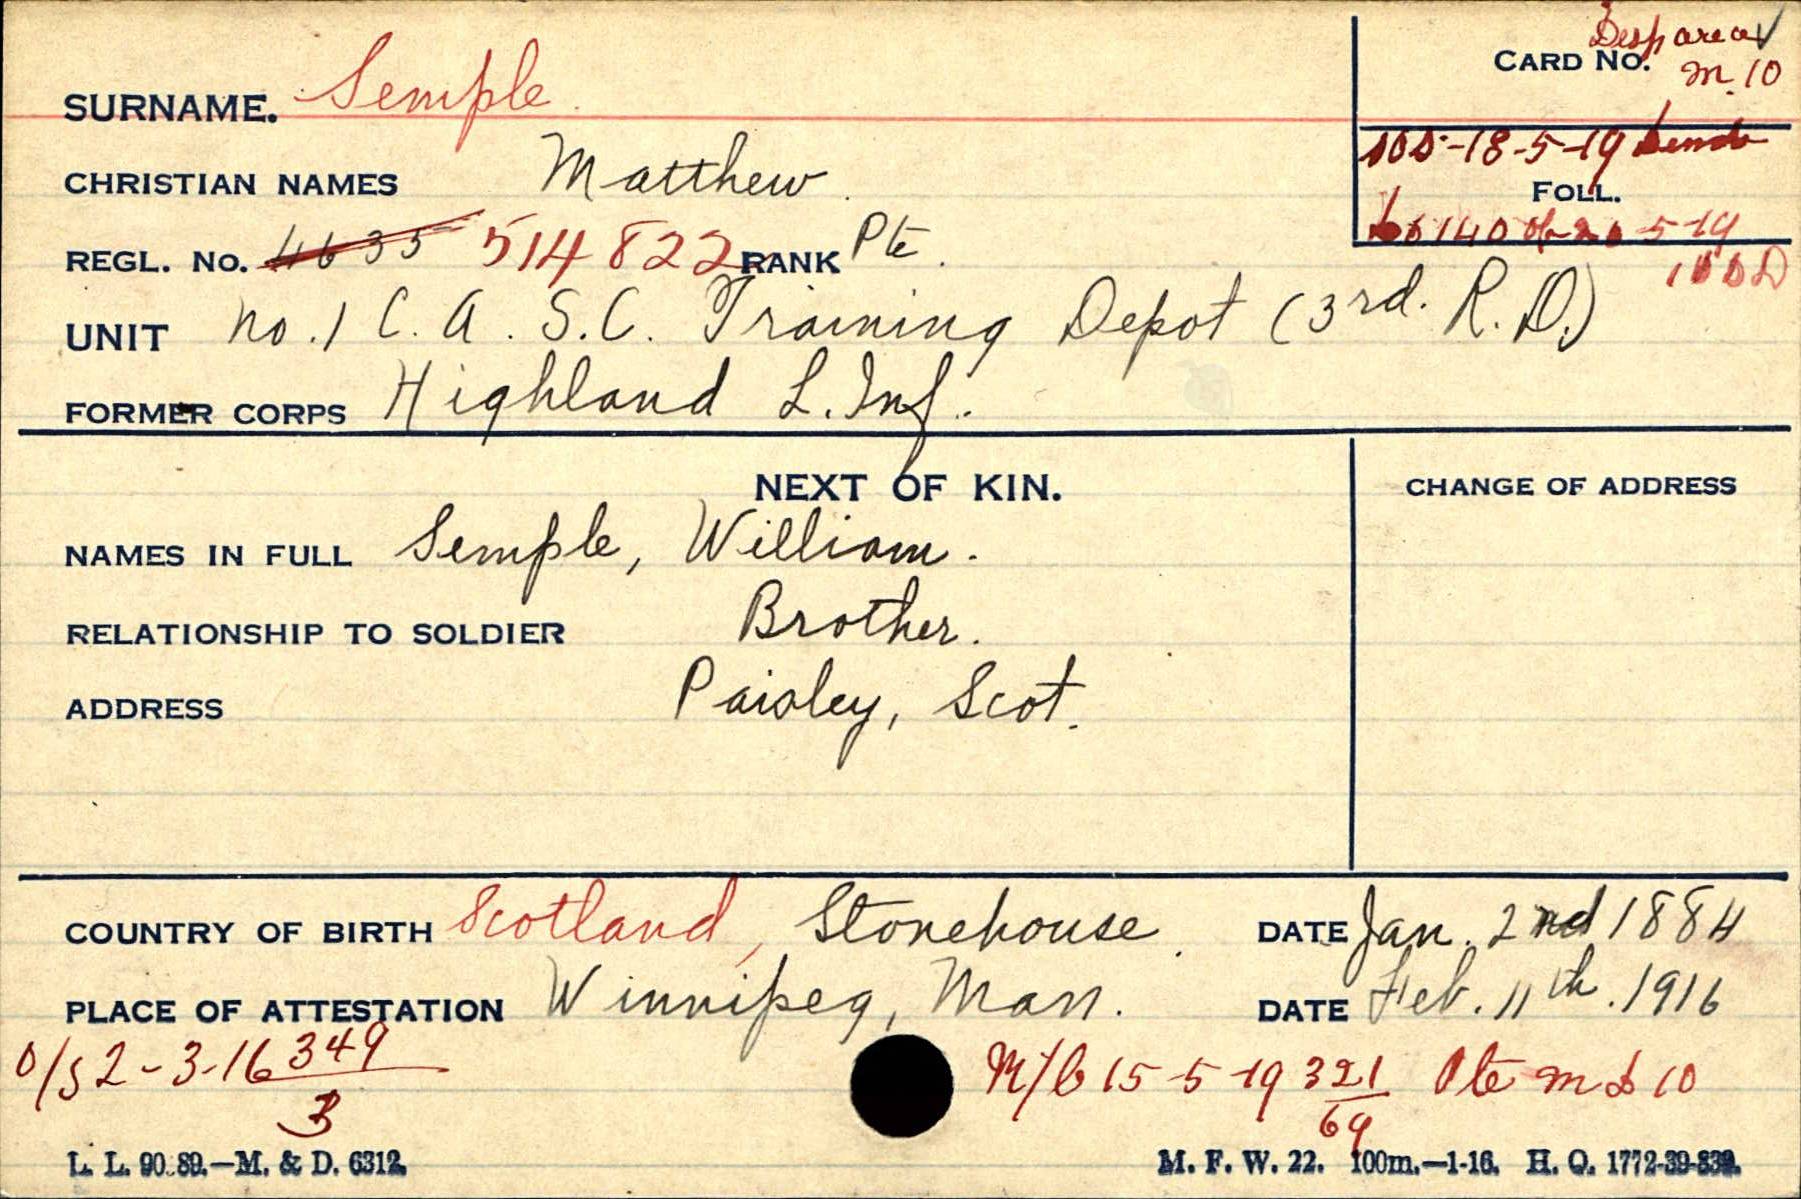 Desp area ✓
CARD NO. M. 10
SURNAME. Semple.
SOS-18-5-19 Demob
CHRISTIAN NAMES Matthew.
FOLL.
REGL. NO. 4635 514822 RANK Pte.
20-5-19
10 D D
UNIT No. 1 C. A. S. C. Training Depot (3rd. R. D.)
FORMER CORPS Highland L. Inf.
NEXT OF KIN.
CHANGE OF ADDRESS
NAMES IN FULL Semple, William.
RELATIONSHIP TO SOLDIER Brother.
ADDRESS Paisley, Scot.
COUNTRY OF BIRTH Scotland, Stonehouse. DATE Jan. 2nd 1884
PLACE OF ATTESTATION Winnipeg, Man. DATE Feb. 11th. 1916
O/S 2-3-16 349
3
15-5-19 321 Pte M D 10
69
L. L. 90.89.—M. & D. 6312.
M. F. W. 22. 100m.—1-16. H. Q. 1772-39-839.